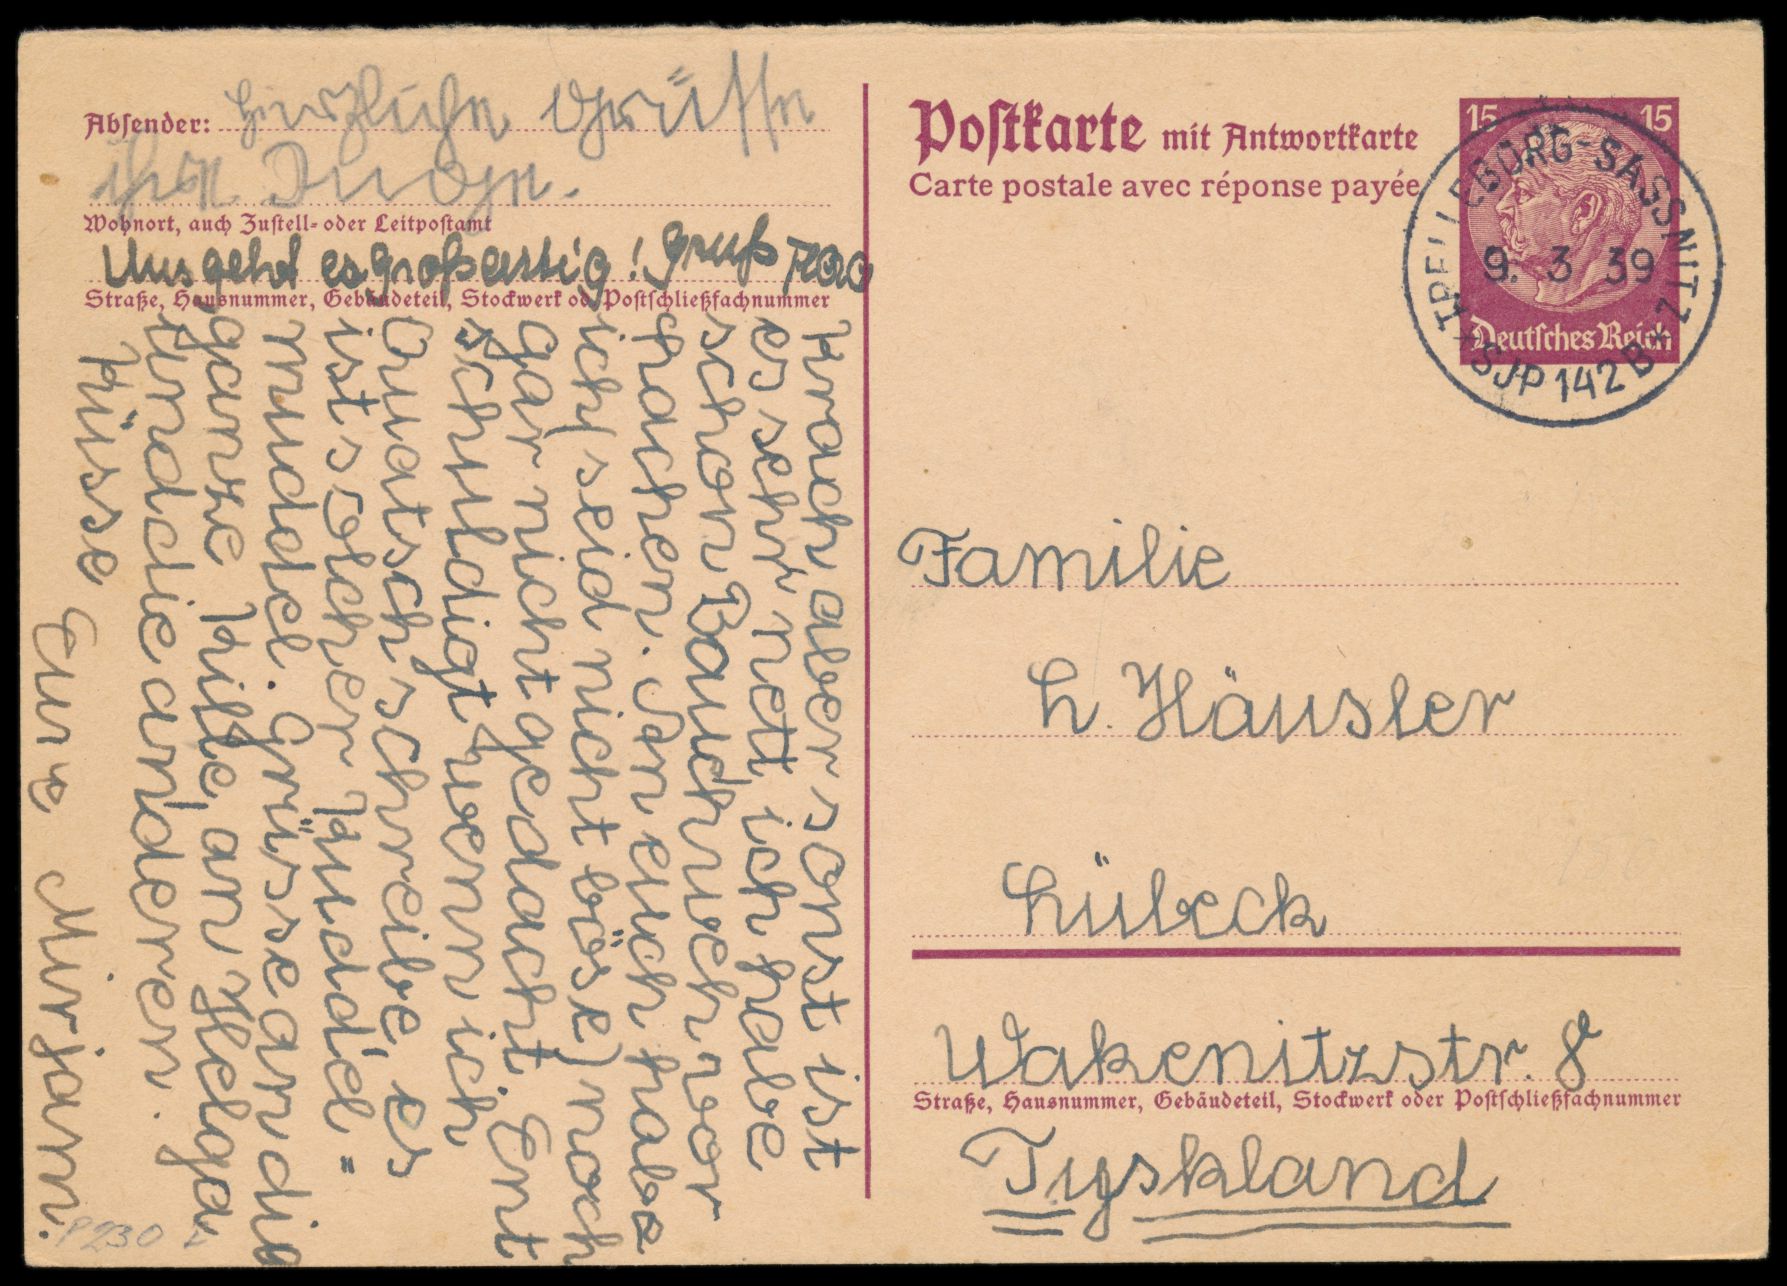 Postkarte mit Antwortkarte
Carte postale avec réponse payée
15 15
Deutsches Reich
TRELLEBORG-SASSNITZ
9. 3 39
SJP 142 B
Absender: Herzliche Grüsse
ihre
Wohnort, auch Zustell- oder Leitpostamt
Uns geht es großartig! Gruß
Straße, Hausnummer, Gebäudeteil, Stockwerk od. Postschließfachnummer
Krach aber sonst ist
es sehr nett ich habe
schon Bauchweh vor
hachen. An euch habe
ich (seid nicht böse) noch
gar nicht gedacht. Ent
schuldigt wenn ich
Quatsch schreibe, es
ist solcher Kuddel =
muddel. Grüsse an die
ganze Kille, an Helga
und die anderen.
Küsse Eure Mirjam.
Familie
L. Häusler
Lübeck
Wakenitzstr. 8
Straße, Hausnummer, Gebäudeteil, Stockwerk oder Postschließfachnummer
Tyskland
P230